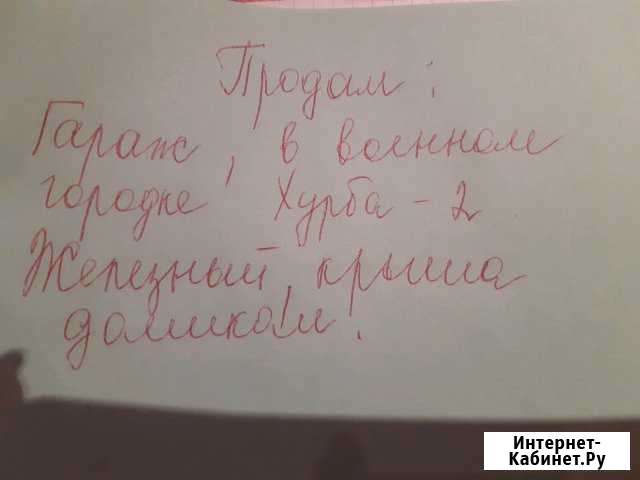 Продам:
Гараж, в военном
городке Хурба-2
Железный, крыша
домиком.
Интернет-
Кабинет.Ру